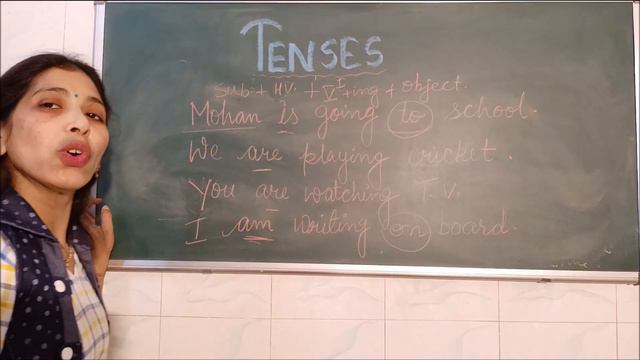 TENSES
Sub. + HV. + V I + ing + object.
Mohan is going to school.
We are playing cricket.
You are watching T.V.
I am writing on board.